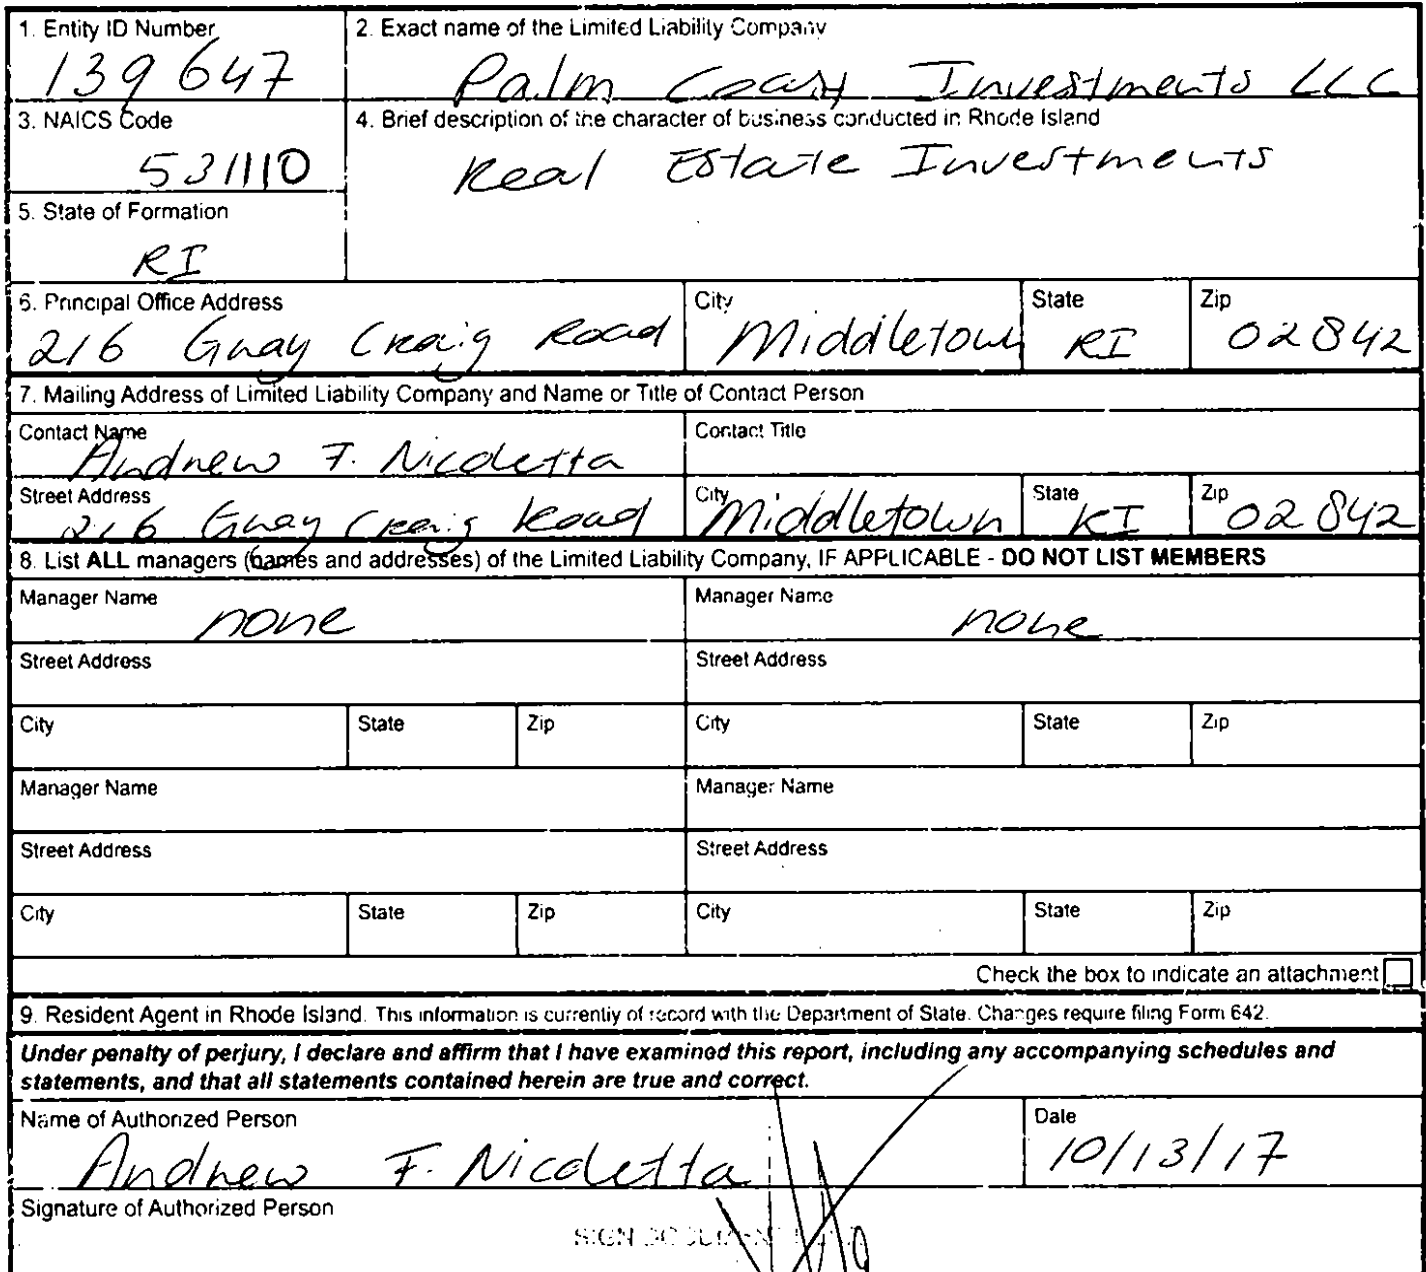 1. Entity ID Number
139647
2. Exact name of the Limited Liability Company
Palm Coast Investments LLC
3. NAICS Code
531110
4. Brief description of the character of business conducted in Rhode Island
Real Estate Investments
5. State of Formation
RI
6. Principal Office Address
216 Gray Craig Road
City
Middletown
State
RI
Zip
02842
7. Mailing Address of Limited Liability Company and Name or Title of Contact Person
Contact Name
Andrew F. Nicoletta
Contact Title
Street Address
216 Gray Craig Road
City
Middletown
State
RI
Zip
02842
8. List ALL managers (names and addresses) of the Limited Liability Company, IF APPLICABLE - DO NOT LIST MEMBERS
Manager Name
none
Manager Name
none
Street Address
Street Address
City
State
Zip
City
State
Zip
Manager Name
Manager Name
Street Address
Street Address
City
State
Zip
City
State
Zip
Check the box to indicate an attachment
9. Resident Agent in Rhode Island. This information is currently of record with the Department of State. Changes require filing Form 642.
Under penalty of perjury, I declare and affirm that I have examined this report, including any accompanying schedules and
statements, and that all statements contained herein are true and correct.
Name of Authorized Person
Andrew F. Nicoletta
Date
10/13/17
Signature of Authorized Person
SIGN DOCUMENT